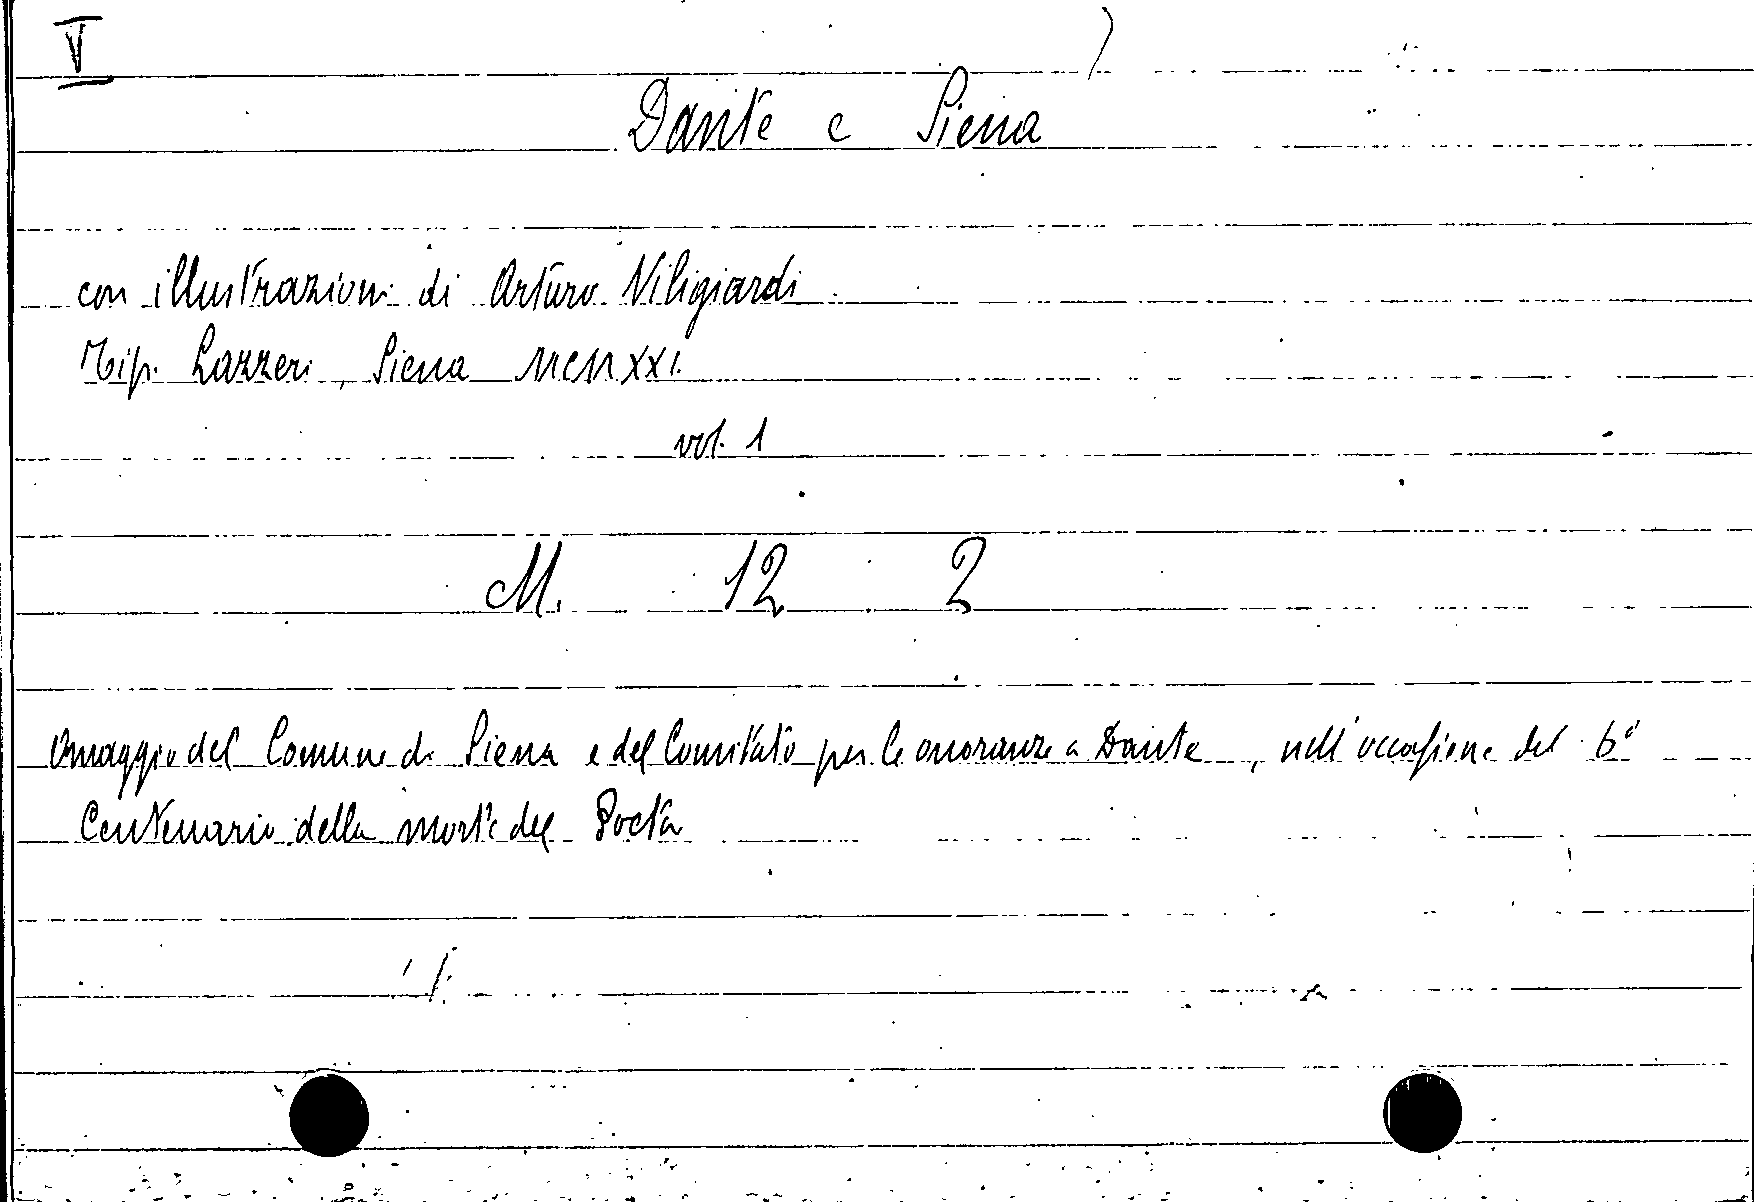 V
Dante e Siena
con illustrazioni di Arturo Viligiardi
Tip. Lazzeri, Siena MCMXXI.
vol. 1
M. 12 2
Omaggio del Comune di Siena e del Comitato per le onoranze a Dante, nell'occasione del 6°
Centenario della morte del Poeta